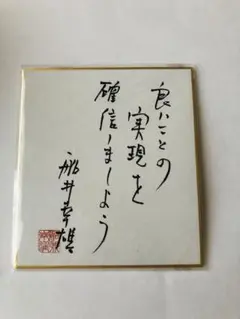 良いことの
実現を
確信しましょう
船井幸雄